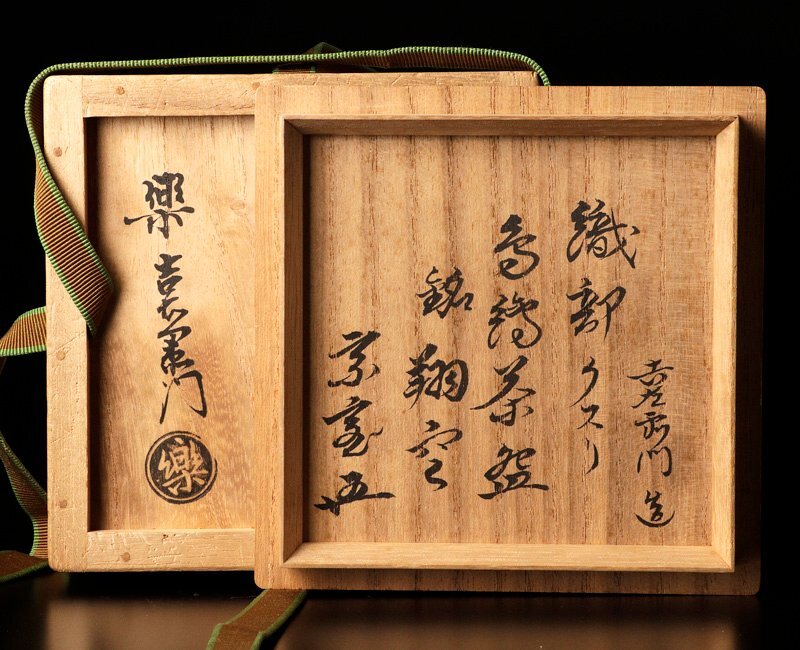 吉左衛門 造
織部クスリ
茶盌
銘 翔空
宗室
樂 吉左衛門
樂